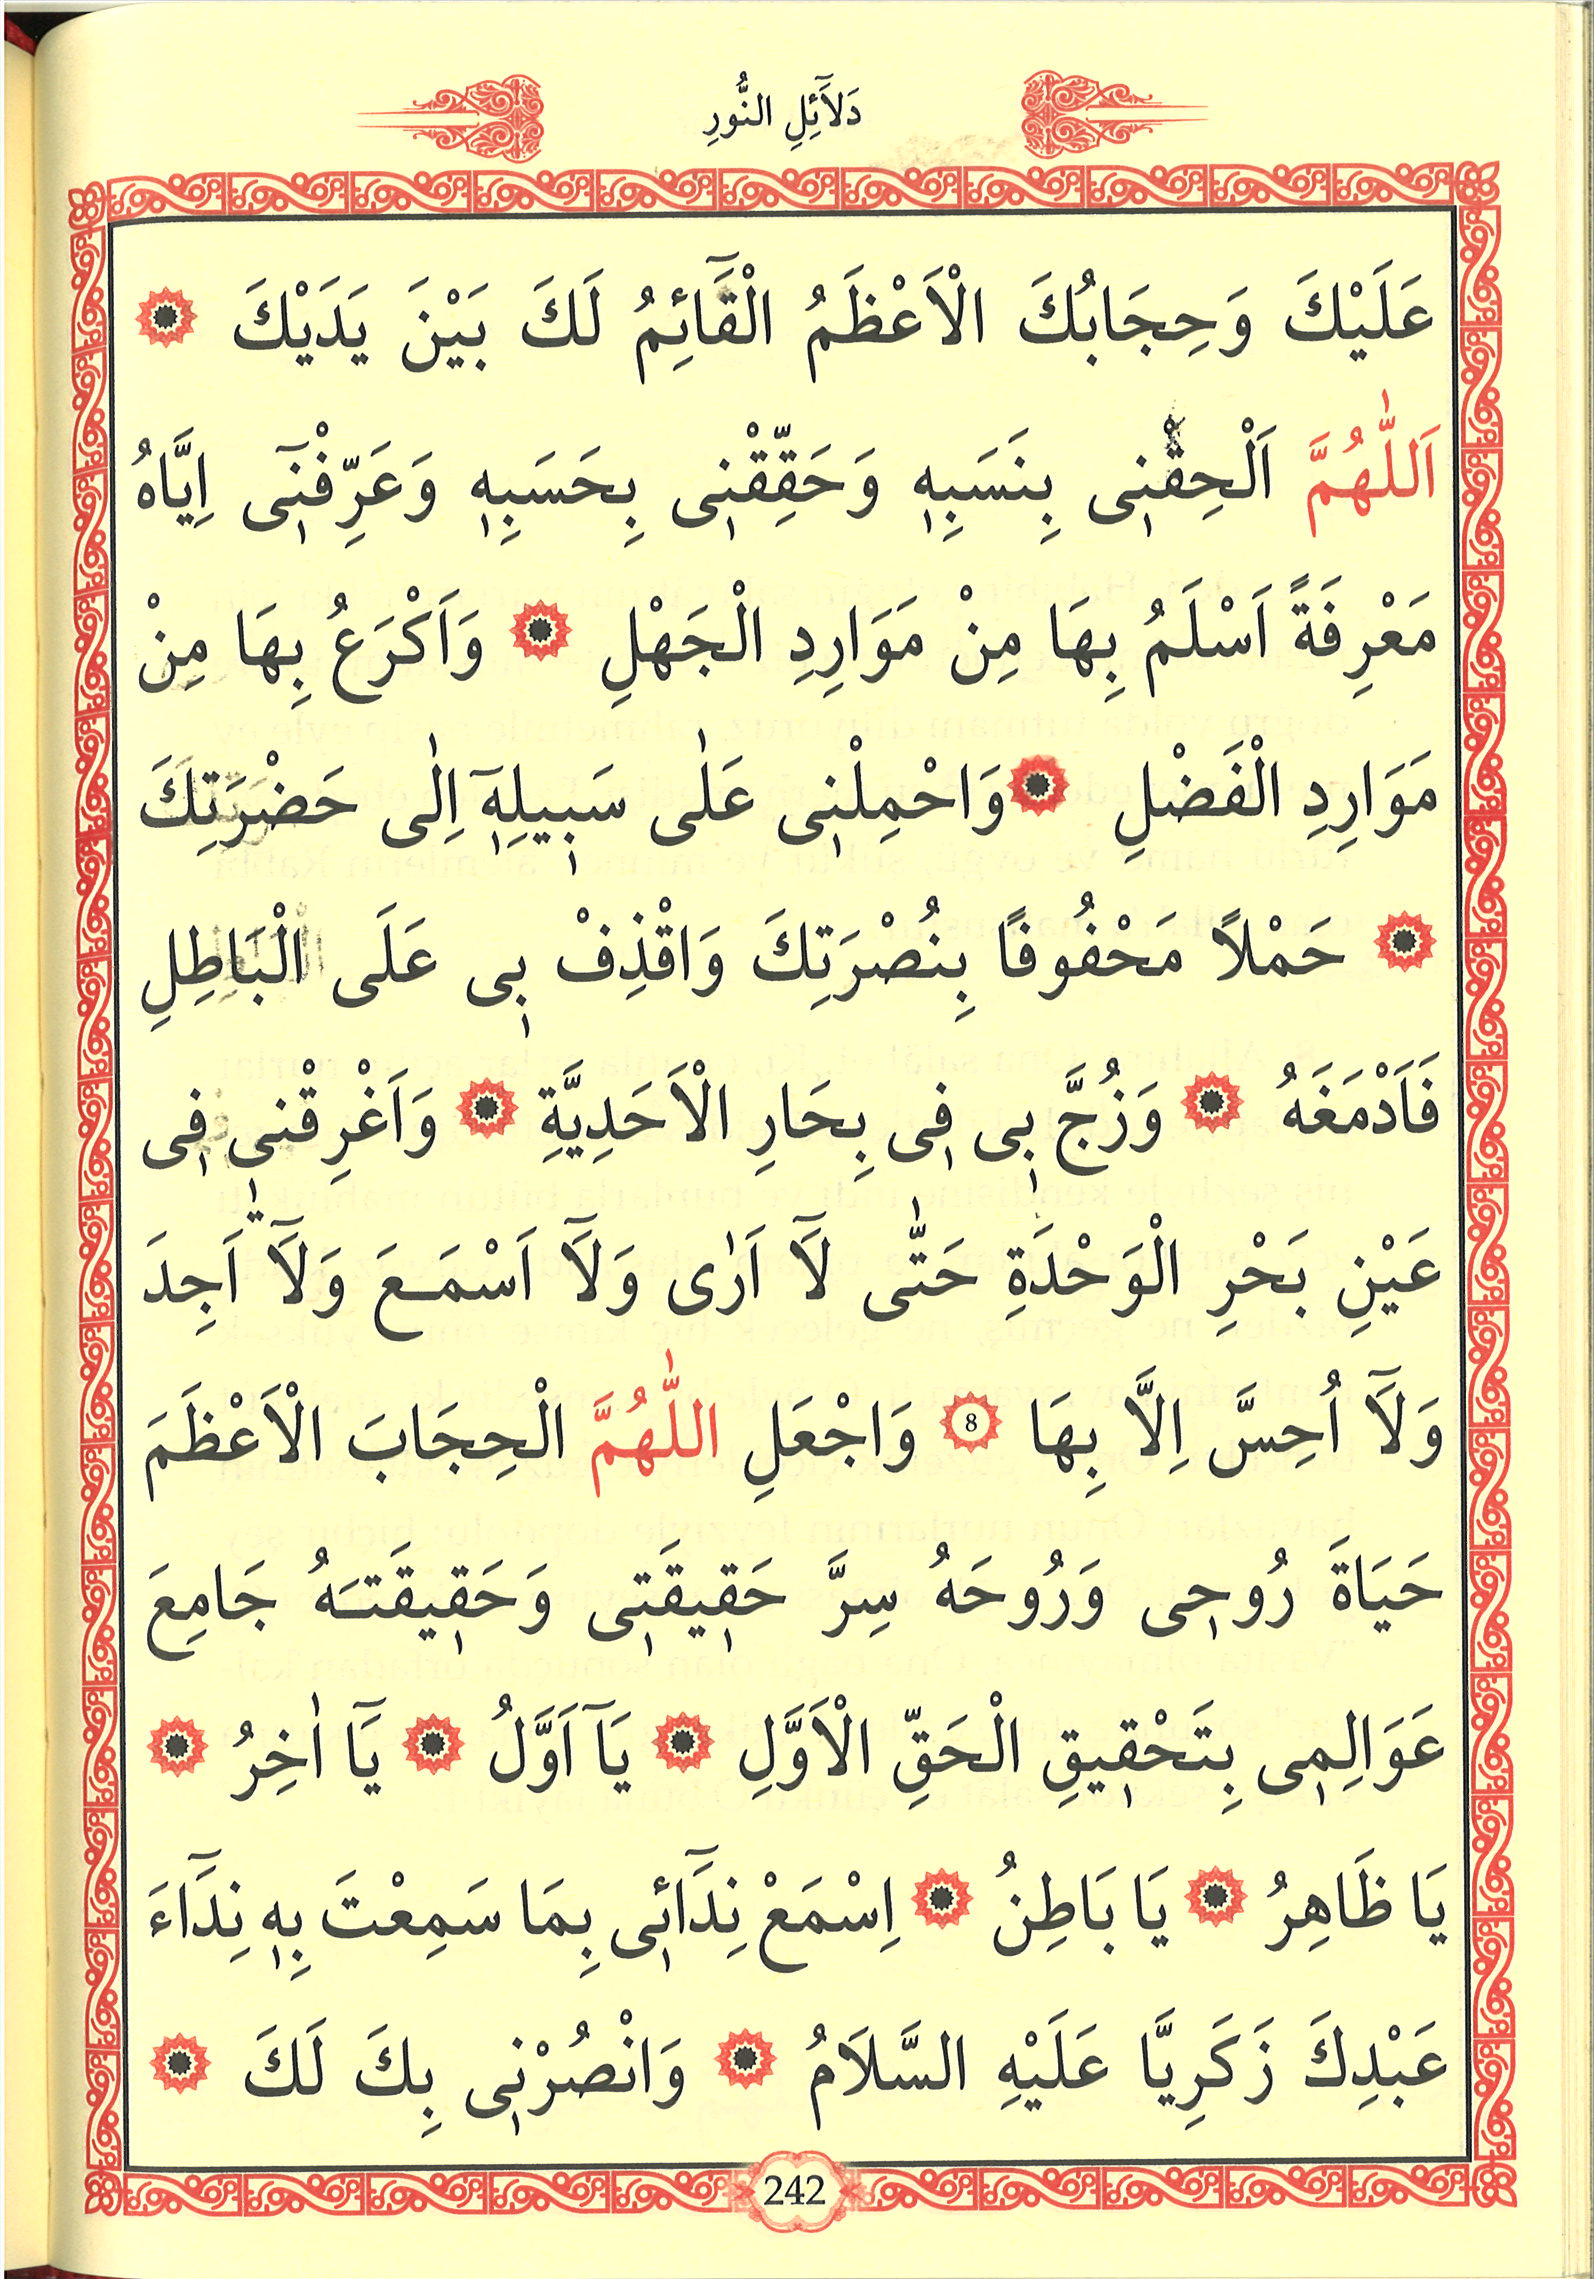 دَلَٓائِلِ النُّورِ
عَلَيْكَ وَحِجَابُكَ الْاَعْظَمُ الْقَٓائِمُ لَكَ بَيْنَ يَدَيْكَ
اَللّٰهُمَّ اَلْحِقْن۪ى بِنَسَبِه۪ وَحَقِّقْن۪ى بِحَسَبِه۪ وَعَرِّفْن۪ٓى اِيَّاهُ
مَعْرِفَةً اَسْلَمُ بِهَا مِنْ مَوَارِدِ الْجَهْلِ وَاَكْرَعُ بِهَا مِنْ
مَوَارِدِ الْفَضْلِ وَاحْمِلْن۪ى عَلٰى سَب۪يلِه۪ٓ اِلٰى حَضْرَتِكَ
حَمْلاً مَحْفُوفًا بِنُصْرَتِكَ وَاقْذِفْ ب۪ى عَلَى الْبَاطِلِ
فَاَدْمَغَهُ وَزُجَّ ب۪ى ف۪ى بِحَارِ الْاَحَدِيَّةِ وَاَغْرِقْن۪ى ف۪ى
عَيْنِ بَحْرِ الْوَحْدَةِ حَتّٰى لَٓا اَرٰى وَلَٓا اَسْمَعَ وَلَٓا اَجِدَ
وَلَٓا اُحِسَّ اِلَّا بِهَا 8 وَاجْعَلِ اللّٰهُمَّ الْحِجَابَ الْاَعْظَمَ
حَيَاةَ رُوح۪ى وَرُوحَهُ سِرَّ حَق۪يقَت۪ى وَحَق۪يقَتَهُ جَامِعَ
عَوَالِم۪ى بِتَحْق۪يقِ الْحَقِّ الْاَوَّلِ يَٓا اَوَّلُ يَٓا اٰخِرُ
يَا ظَاهِرُ يَا بَاطِنُ اِسْمَعْ نِدَٓائ۪ى بِمَا سَمِعْتَ بِه۪ نِدَٓاءَ
عَبْدِكَ زَكَرِيَّا عَلَيْهِ السَّلَامُ وَانْصُرْن۪ى بِكَ لَكَ
242